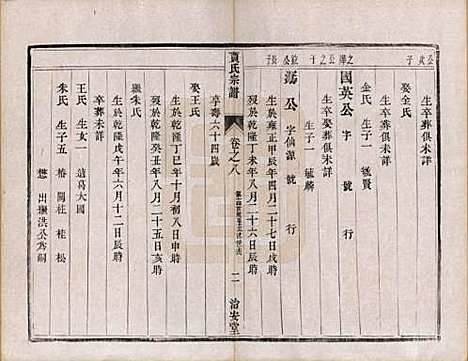 生卒葬俱未詳
娶金氏
生卒葬俱未詳
金氏 生子一 毓賢
國英公 字 號 行
生卒娶葬俱未詳
生子一 毓麟
公 字仙源 號 行
生於雍正甲辰年四月二十七日戌時
歿於乾隆丁未年八月二十六日辰時
享壽六十四歲
娶王氏
生於乾隆丁巳年十月初八日申時
歿於乾隆癸丑年八月二十五日亥時
繼朱氏
生於乾隆戊午年六月十二日辰時
卒葬未詳
王氏 生子女 適葛大國
朱氏 生子五 椿 閣 杜 桂 松
楚 出繼洪公為嗣
賁氏宗譜
卷之八
二
治安堂